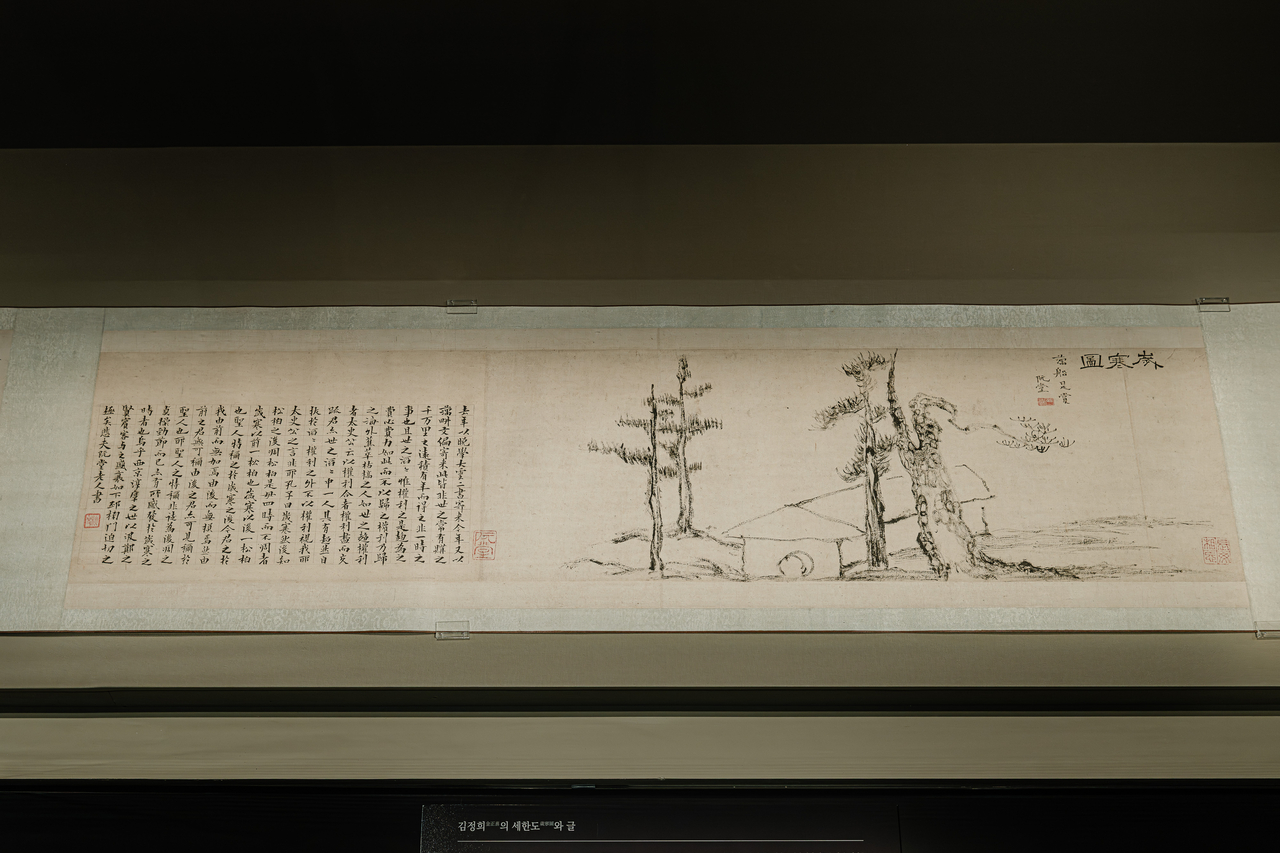 歲寒圖
藕船是賞
阮堂
阮堂
去年以晚學大雲二書寄來今年又以
藕畊文編寄來此皆非世之常有購之
千万里之遠積有年而得之非一時之
事也且世之滔〻惟權利之是趨爲之
費心費力如此而不以歸之權利乃歸
之海外蕉萃枯槁之人如世之趨權利
者太史公云以權利合者權利盡而交
踈君亦世之滔〻中一人其有超然自
拔於滔〻權利之外不以權利視我耶
太史公之言非耶孔子曰歲寒然後知
松柏之後凋松柏是毌四時而不凋者
歲寒以前一松柏也歲寒以後一松柏
也聖人特稱之於歲寒之後今君之於
我由前而無加焉由後而無損焉然由
前之君無可稱由後之君亦可見稱於
聖人也耶聖人之特稱非徒爲後凋之
貞操勁節而已亦有所感發於歲寒之
時者也烏乎西京淳厖之世以汲鄭之
賢賓客與之盛衰如下邳榜門迫切之
極矣悲夫阮堂老人書
김정희金正喜의 세한도歲寒圖와 글